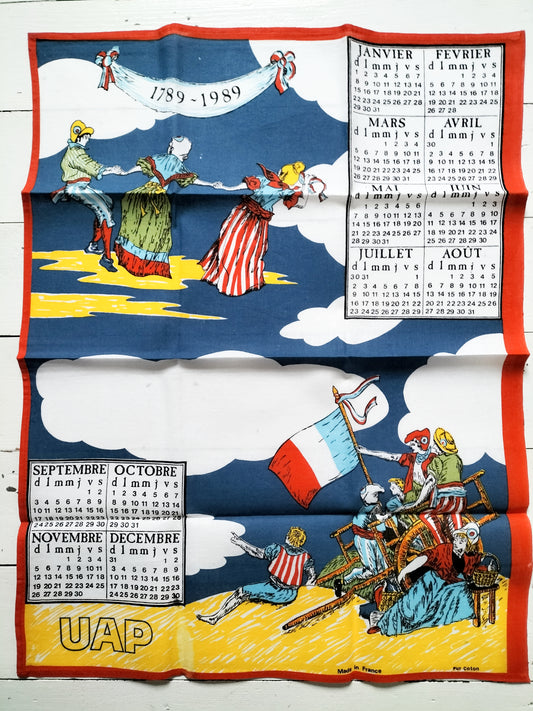 1789-1989
JANVIER
d l m m j v s
1 2 3 4 5 6 7
8 9 10 11 12 13 14
15 16 17 18 19 20 21
22 23 24 25 26 27 28
29 30 31
FEVRIER
d l m m j v s
1 2 3 4
5 6 7 8 9 10 11
12 13 14 15 16 17 18
19 20 21 22 23 24 25
26 27 28
MARS
d l m m j v s
1 2 3 4
5 6 7 8 9 10 11
12 13 14 15 16 17 18
19 20 21 22 23 24 25
26 27 28 29 30 31
AVRIL
d l m m j v s
30 1
2 3 4 5 6 7 8
9 10 11 12 13 14 15
16 17 18 19 20 21 22
23 24 25 26 27 28 29
MAI
d l m m j v s
1 2 3 4 5 6
7 8 9 10 11 12 13
14 15 16 17 18 19 20
21 22 23 24 25 26 27
28 29 30 31
JUIN
d l m m j v s
1 2 3
4 5 6 7 8 9 10
11 12 13 14 15 16 17
18 19 20 21 22 23 24
25 26 27 28 29 30
JUILLET
d l m m j v s
30 31
1
2 3 4 5 6 7 8
9 10 11 12 13 14 15
16 17 18 19 20 21 22
23 24 25 26 27 28 29
AOÛT
d l m m j v s
1 2 3 4 5
6 7 8 9 10 11 12
13 14 15 16 17 18 19
20 21 22 23 24 25 26
27 28 29 30 31
SEPTEMBRE
d l m m j v s
1 2
3 4 5 6 7 8 9
10 11 12 13 14 15 16
17 18 19 20 21 22 23
24 25 26 27 28 29 30
OCTOBRE
d l m m j v s
1 2 3 4 5 6 7
8 9 10 11 12 13 14
15 16 17 18 19 20 21
22 23 24 25 26 27 28
29 30 31
NOVEMBRE
d l m m j v s
1 2 3 4
5 6 7 8 9 10 11
12 13 14 15 16 17 18
19 20 21 22 23 24 25
26 27 28 29 30
DECEMBRE
d l m m j v s
31 1 2
3 4 5 6 7 8 9
10 11 12 13 14 15 16
17 18 19 20 21 22 23
24 25 26 27 28 29 30
UAP
Made in France
Pur Coton